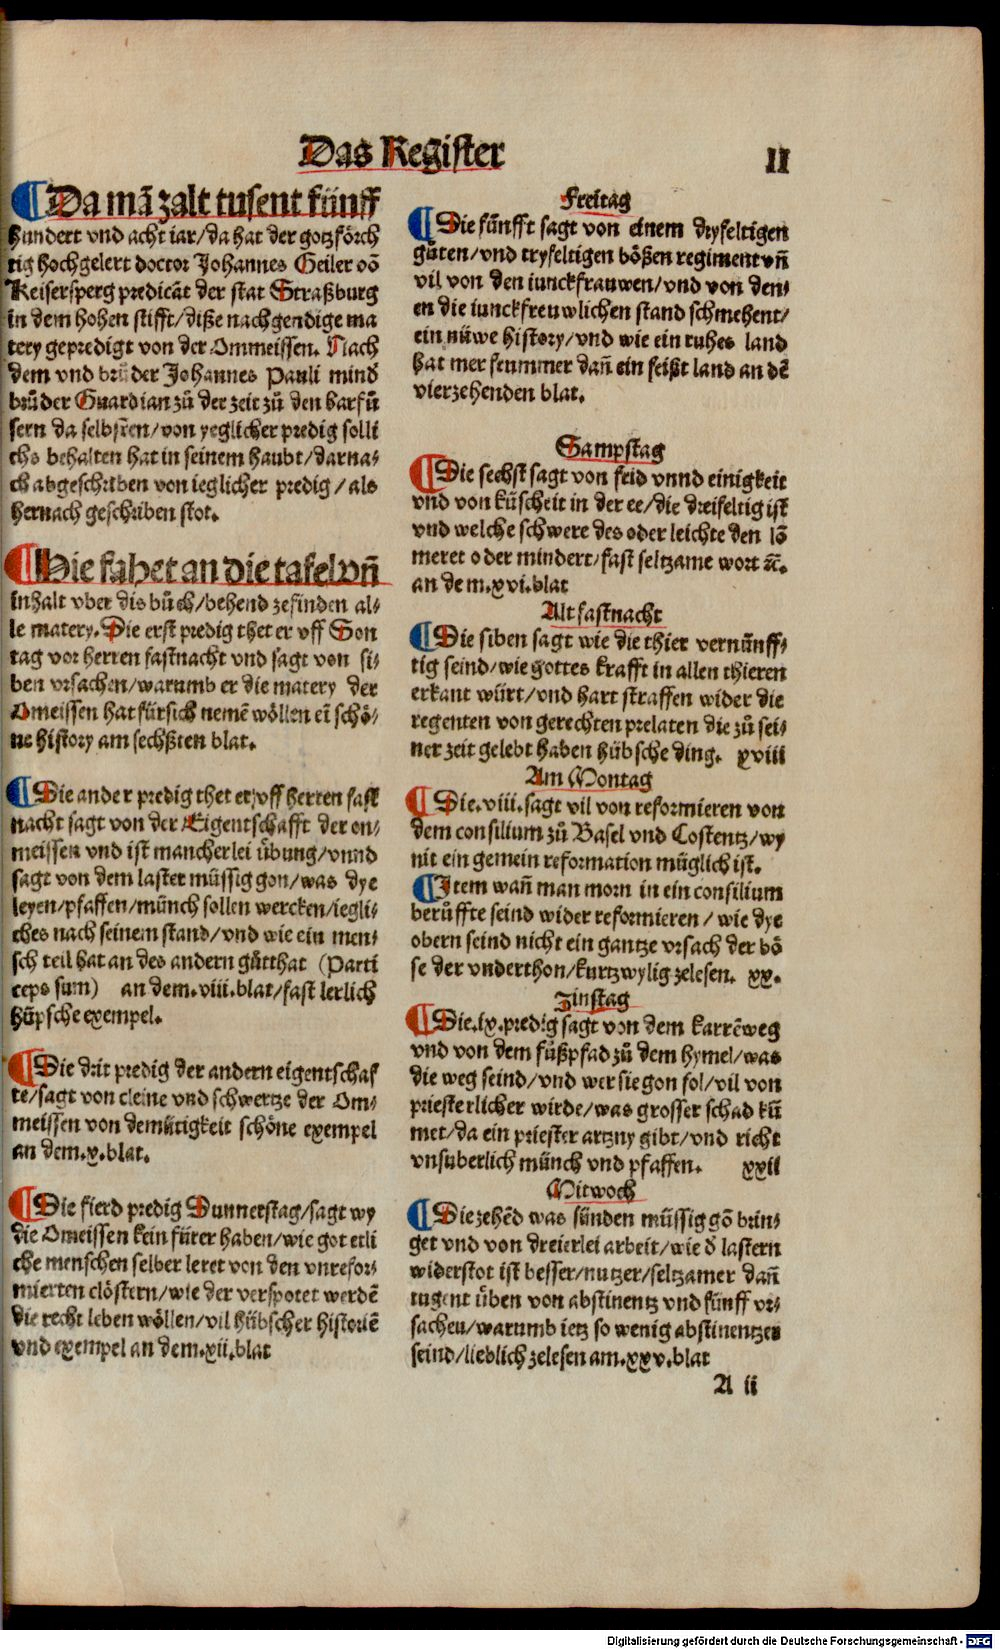 Das Register
II
¶Da mã zalt tusent fünff
hundert vnd acht iar/da hat der gotzförch
tig hochgelert doctor Johannes Geiler võ
Keisersperg predicãt der stat Straßburg
in dem hohen stifft/diße nachgendige ma
tery gepredigt von der Ommeissen. Nach
dem vnd brůder Johannes Pauli mind̕
brůder Guardian zů der zeit zů den barfů
sern da selbsten/von yeglicher predig solli
chs behalten hat in seinem haubt/darna⸗
ch abgeschriben von ieglicher predig/als
hernach geschriben stot.
¶Hie fahet an die tafel vñ
inhalt vber dis bůch/behend zefinden al⸗
le matery. Die erst predig thet er vff Son
tag vor herren fastnacht vnd sagt von si⸗
ben vrsachen/warumb er die matery der
Omeissen hat für sich nemẽ wöllen eĩ schö⸗
ne history am sechßten blat.
¶Die ander predig thet er vff herren fast
nacht sagt von der Eigentschafft der on⸗
meissen vnd ist mancherlei übung/vnnd
sagt von dem laster müssig gon/was dye
leyen/pfaffen/münch sollen wercken/iegli⸗
ches nach seinem stand/vnd wie ein men⸗
sch teil hat an des andern gůtthat (Parti
ceps sum) an dem.viii.blat/fast lerlich
hüpsche exempel.
¶Die drit predig der andern eigentschaf
te/sagt von cleine vnd schwertze der Om⸗
meissen von demütigkeit schöne exempel
an dem.x.blat.
¶Die fierd predig Dunnerstag/sagt wy
die Omeissen kein fürer haben/wie got etli
che menschen selber leret von den vnrefor⸗
mierten clöstern/wie der verspotet werdẽ
die recht leben wöllen/vil hübscher historiẽ
vnd exempel an dem.xii.blat
Freitag
¶Die fünfft sagt von einem dryfeltigen
gůten/vnd tryfeltigen bößen regiment vñ
vil von den iunckfrauwen/vnd von den⸗
en die iunckfreuwlichen stand schmehent/
ein nüwe history/vnd wie ein ruhes land
hat mer frummer dañ ein feißt land an dẽ
vierzehenden blat.
Sampstag
¶Die sechst sagt von frid vnnd einigkeit
vnd von küscheit in der ee/die dreifeltig ist
vnd welche schwere des oder leichte den lõ
meret oder mindert/fast seltzame wort ꝛc̃.
an dem.xvi.blat
Alt fastnacht
¶Die siben sagt wie die thier vernünff⸗
tig seind/wie gottes krafft in allen thieren
erkant würt/vnd hart straffen wider die
regenten von gerechten prelaten die zů sei⸗
ner zeit gelebt haben hübsche ding. xviii
Am Montag
¶Die.viii.sagt vil von reformieren von
dem consilium zů Basel vnd Costentz/wy
nit ein gemein reformation müglich ist.
¶Item wañ man morn in ein consilium
berůffte seind wider reformieren/wie dye
obern seind nicht ein gantze vrsach der bö
se der vnderthon/kurtzwylig zelesen. xx.
Zinstag
¶Die.ix.predig sagt von dem karrẽweg
vnd von dem fůßpfad zů dem hymel/was
die weg seind/vnd wer sie gon sol/vil von
priesterlicher wirde/was grosser schad kũ
met/da ein priester artzny gibt/vnd richt
vnsuberlich münch vnd pfaffen. xxii
Mitwoch
¶Die zehẽd was sünden müssig gõ brin⸗
get vnd von dreierlei arbeit/wie d̕ lastern
widerstot ist besser/nutzer/seltzamer dañ
tugent üben von abstinentz vnd fünff vr⸗
sachen/warumb ietz so wenig abstinentzen
seind/lieblich zelesen am.xxv.blat
A ii
Digitalisierung gefördert durch die Deutsche Forschungsgemeinschaft - DFG